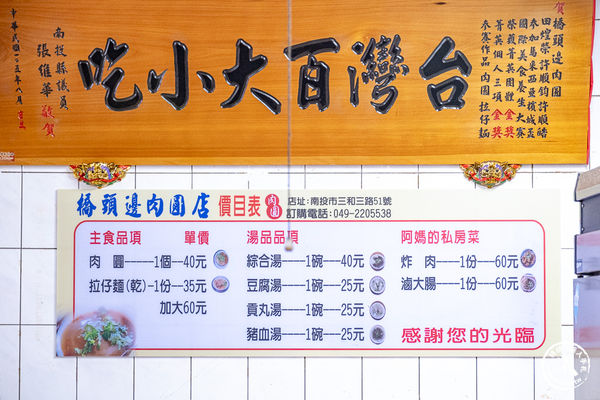 賀橋頭邊肉圓
田煌榮許順鈞許順皓
參加馬來西亞檳城盃
國際美食養生大賽
榮獲菁英團體金獎
菁英個人三項金獎
參賽作品肉圓拉仔麵
台灣百大小吃
南投縣議員
張維華 敬賀
橋頭邊肉圓店 價目表 肉圓
店址:南投市三和三路51號
訂購電話:049-2205538
主食品項 單價
肉 圓------1個--40元
拉仔麵(乾)-1份---35元
加大60元
湯品品項
綜合湯----1碗----40元
豆腐湯----1碗----25元
貢丸湯----1碗----25元
豬血湯----1碗----25元
阿媽的私房菜
炸 肉----1份----60元
滷大腸----1份----60元
感謝您的光臨